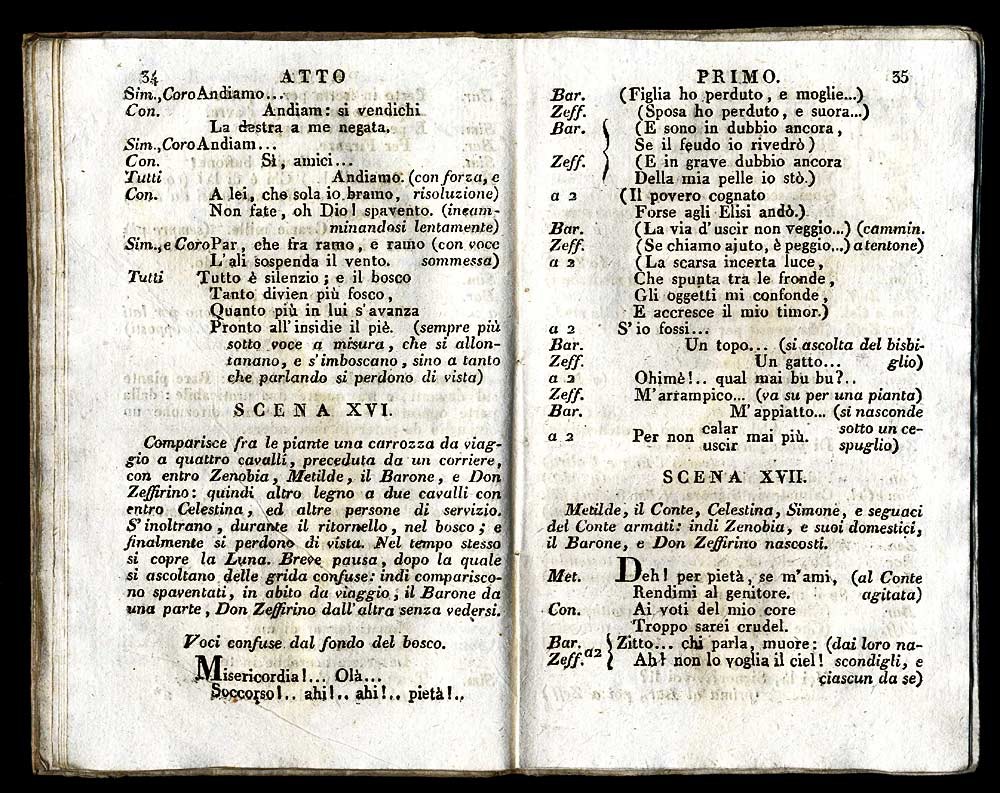 34 ATTO
Sim., Coro Andiamo...
Con. Andiam: si vendichi
La destra a me negata.
Sim., Coro Andiam...
Con. Sì, amici...
Tutti Andiamo. (con forza, e
Con. A lei, che sola io bramo, risoluzione)
Non fate, oh Dio! spavento. (incam-
minandosi lentamente)
Sim., e Coro Par, che fra ramo, e ramo (con voce
L'ali sospenda il vento. sommessa)
Tutti Tutto è silenzio; e il bosco
Tanto divien più fosco,
Quanto più in lui s'avanza
Pronto all'insidie il piè. (sempre più
sotto voce a misura, che si allon-
tanano, e s'imboscano, sino a tanto
che parlando si perdono di vista)
SCENA XVI.
Comparisce fra le piante una carrozza da viag-
gio a quattro cavalli, preceduta da un corriere,
con entro Zenobia, Metilde, il Barone, e Don
Zeffirino: quindi altro legno a due cavalli con
entro Celestina, ed altre persone di servizio.
S'inoltrano, durante il ritornello, nel bosco; e
finalmente si perdono di vista. Nel tempo stesso
si copre la Luna. Breve pausa, dopo la quale
si ascoltano delle grida confuse: indi comparisco-
no spaventati, in abito da viaggio, il Barone da
una parte, Don Zeffirino dall'altra senza vedersi.
Voci confuse dal fondo del bosco.
Misericordia!... Olà...
Soccorso!.. ahi!.. ahi!.. pietà!..
PRIMO. 35
Bar. (Figlia ho perduto, e moglie...)
Zeff. (Sposa ho perduto, e suora...)
Bar. (E sono in dubbio ancora,
Se il feudo io rivedrò)
Zeff. (E in grave dubbio ancora
Della mia pelle io stò.)
a 2 (Il povero cognato
Forse agli Elisi andò.)
Bar. (La via d'uscir non veggio...) (cammin.
Zeff. (Se chiamo ajuto, è peggio...) a tentone)
a 2 (La scarsa incerta luce,
Che spunta tra le fronde,
Gli oggetti mi confonde,
E accresce il mio timor.)
a 2 S'io fossi...
Bar. Un topo... (si ascolta del bisbi-
Zeff. Un gatto... glio)
a 2 Ohimè!.. qual mai bu bu?..
Zeff. M'arrampico... (va su per una pianta)
Bar. M'appiatto... (si nasconde
calar sotto un ce-
a 2 Per non mai più.
uscir spuglio)
SCENA XVII.
Metilde, il Conte, Celestina, Simone, e seguaci
del Conte armati: indi Zenobia, e suoi domestici,
il Barone, e Don Zeffirino nascosti.
Met. Deh! per pietà, se m'ami, (al Conte
Rendimi al genitore. agitata)
Con. Ai voti del mio core
Troppo sarei crudel.
Bar. Zitto... chi parla, muore: (dai loro na-
Zeff. a2 Ah! non lo voglia il ciel! scondigli, e
ciascun da se)